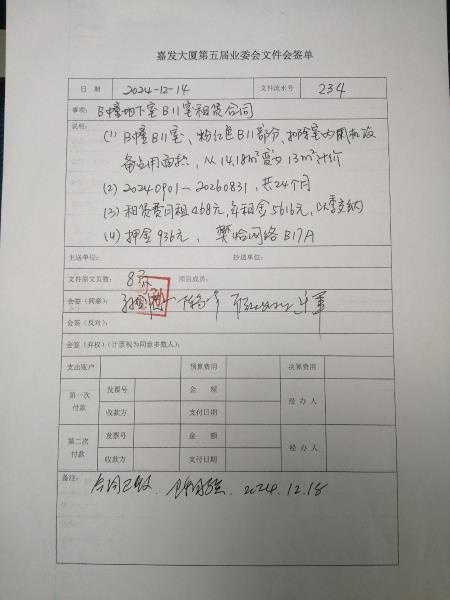 嘉发大厦第五届业委会文件会签单
日 期 2024-12-14 文件流水号 234
事项： B幢地下室B11室租赁合同
说明：
(1) B幢B11室、粉红色B11部分、扣除室内用机设
备占用面积，从14.18m²变为13m²计价
(2) 20240901—20260831，共24个月
(3) 租赁费月租468元，年租金5616元，以季交纳
(4) 押金936元， 樊哈网络B17A
主送单位： 抄送单位：
文件原文页数： 8页 项目成员：
会签（同意）：
会签（反对）：
会签（弃权）（计票视为同意多数人）：
支出账户 预算费用 决算费用
第一次付款 发票号 金 额 经 办 人
收款方 支付日期
第二次付款 发票号 金 额 经 办 人
收款方 支付日期
备注：
合同已收 2024.12.18